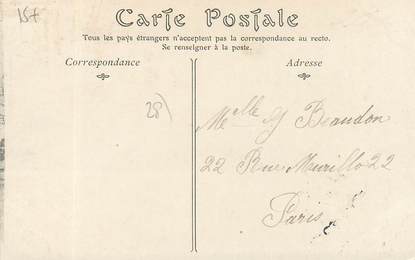 15+
Carte Postale
Tous les pays étrangers n'acceptent pas la correspondance au recto.
Se renseigner à la poste.
Correspondance
Adresse
28)
Melle G Beaudon
22 Rue Murillo 22
Paris